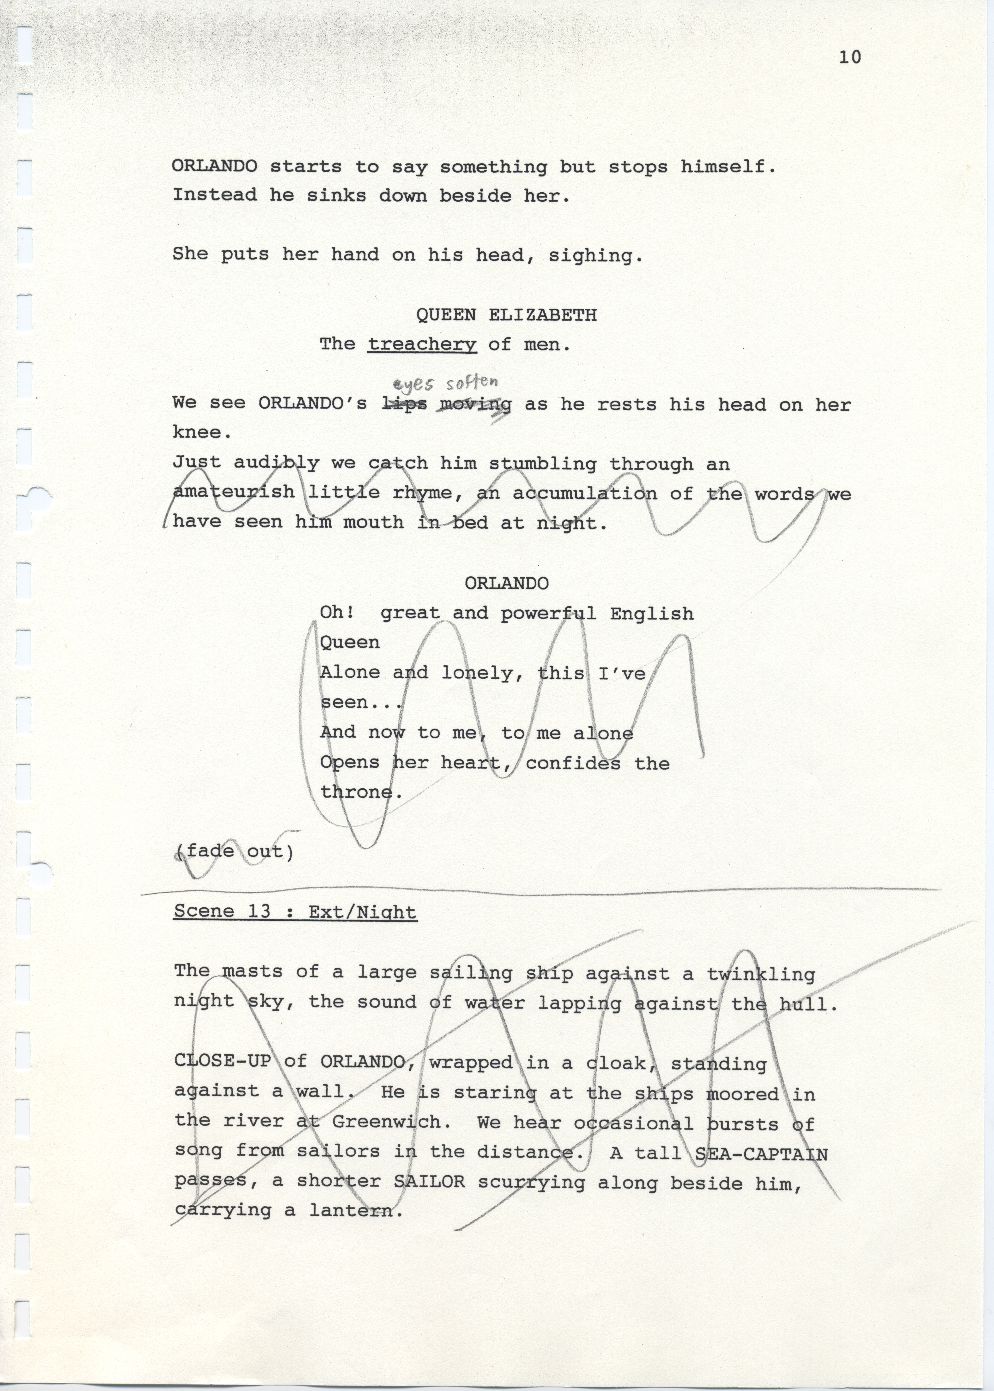 10
ORLANDO starts to say something but stops himself.
Instead he sinks down beside her.
She puts her hand on his head, sighing.
QUEEN ELIZABETH
The treachery of men.
eyes soften
We see ORLANDO's lips moving as he rests his head on her
knee.
Just audibly we catch him stumbling through an
amateurish little rhyme, an accumulation of the words we
have seen him mouth in bed at night.
ORLANDO
Oh! great and powerful English
Queen
Alone and lonely, this I've
seen...
And now to me, to me alone
Opens her heart, confides the
throne.
(fade out)
Scene 13 : Ext/Night
The masts of a large sailing ship against a twinkling
night sky, the sound of water lapping against the hull.
CLOSE-UP of ORLANDO, wrapped in a cloak, standing
against a wall. He is staring at the ships moored in
the river at Greenwich. We hear occasional bursts of
song from sailors in the distance. A tall SEA-CAPTAIN
passes, a shorter SAILOR scurrying along beside him,
carrying a lantern.